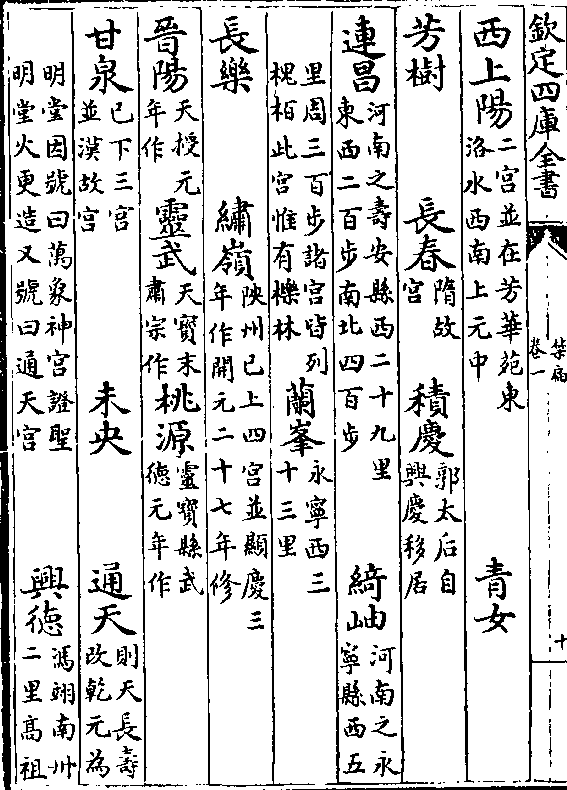 欽定四庫全書
禁扁
卷一
十
西上陽二宮並在芳華苑東
洛水西南上元中
青女
芳樹
長春隋故
宮
積慶郭太后自
興慶移居
連昌河南之壽安縣西二十九里
東西二百步南北四百步
綺岫河南之永
寧縣西五
里周三百步諸宮皆列
槐柏此宮惟有櫟林
蘭峯永寧西三
十三里
長樂
繡嶺陜州已上四宮並顯慶三
年作開元二十七年修
晉陽天授元
年作
靈武天寶末
肅宗作
桃源靈寶縣武
德元年作
甘泉已下三宮
並漢故宮
未央
通天則天長壽
改乾元為
明堂因號曰萬象神宮證聖
明堂火更造又號曰通天宮
興德馮翊南卅
二里高祖